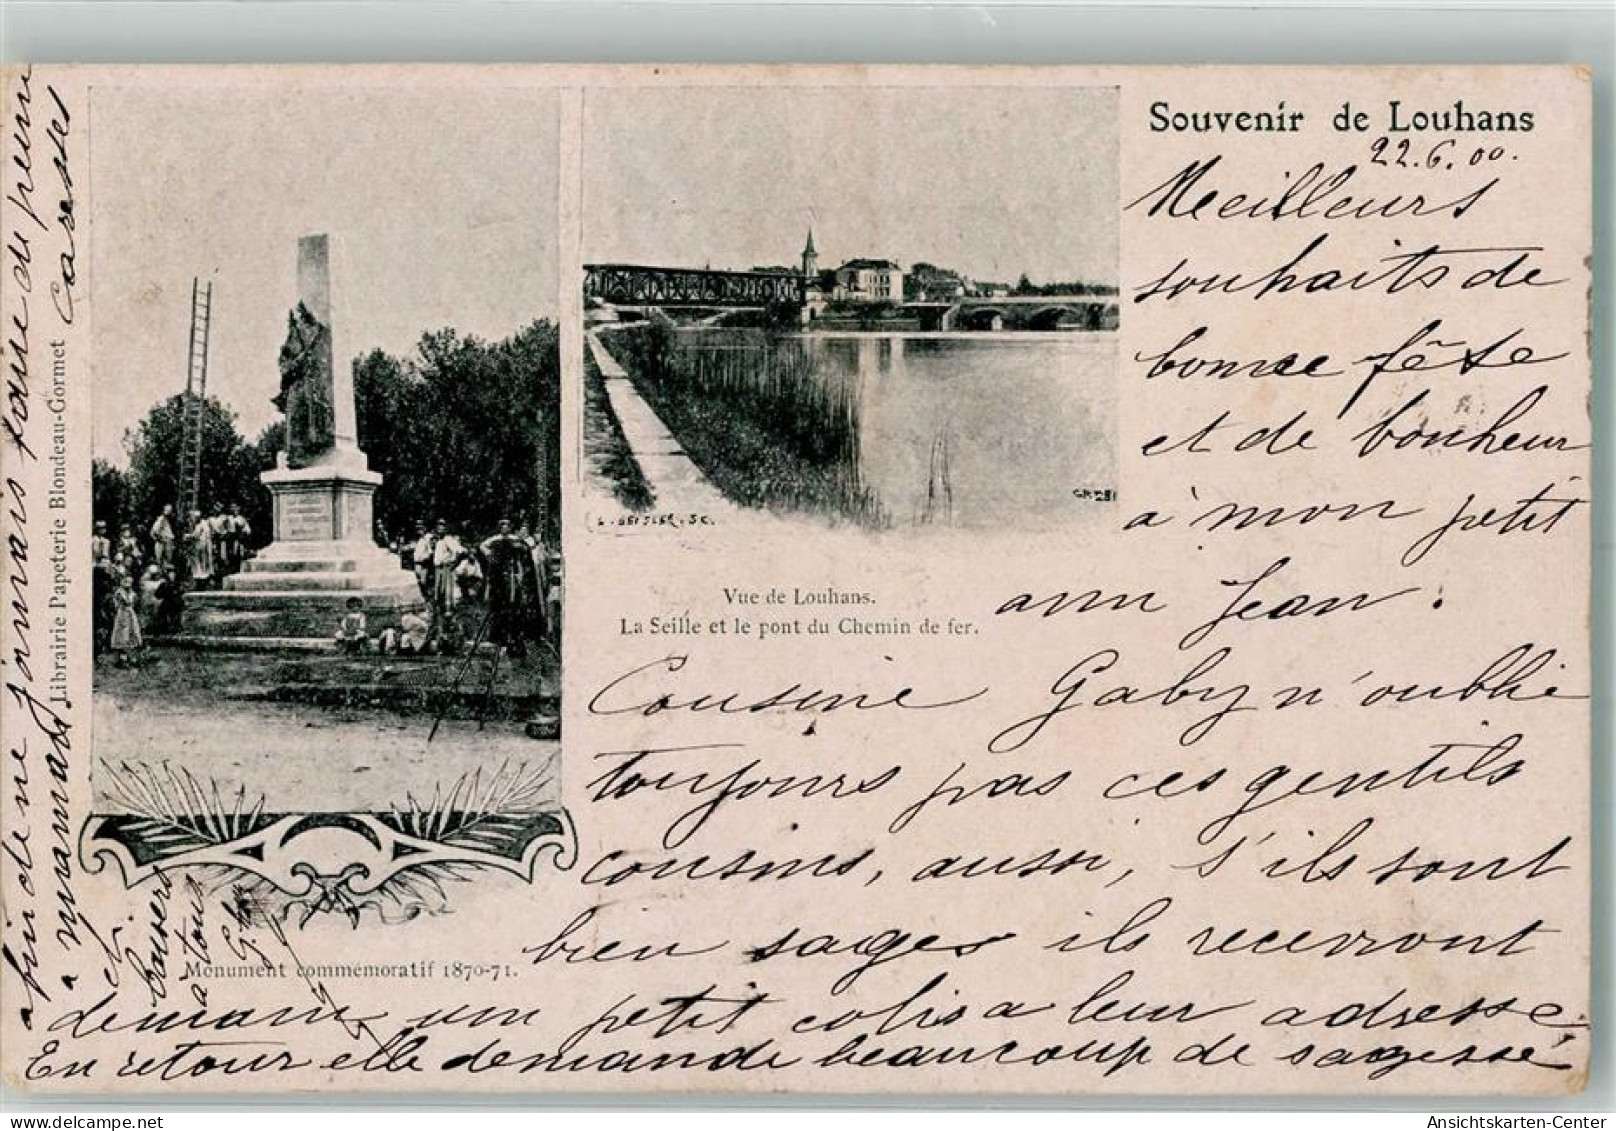 Souvenir de Louhans
22.6.00.
Meilleurs
souhaits de
bonne fête
et de bonheur
à mon petit
ami Jean.
Cousine Gaby n'oublie
toujours pas ces gentils
cousins, aussi, s'ils sont
bien sages ils recevront
demain un petit colis a leur adresse
En retour elle demande beaucoup de sagesse
afin de ne jamais faire de peine
a maman. Caresses
et
baisers
à tous
Vue de Louhans.
La Seille et le pont du Chemin de fer.
L. GEISLER. SC.
Monument commémoratif 1870-71.
Librairie Papeterie Blondeau-Gormet
Ansichtskarten-Center